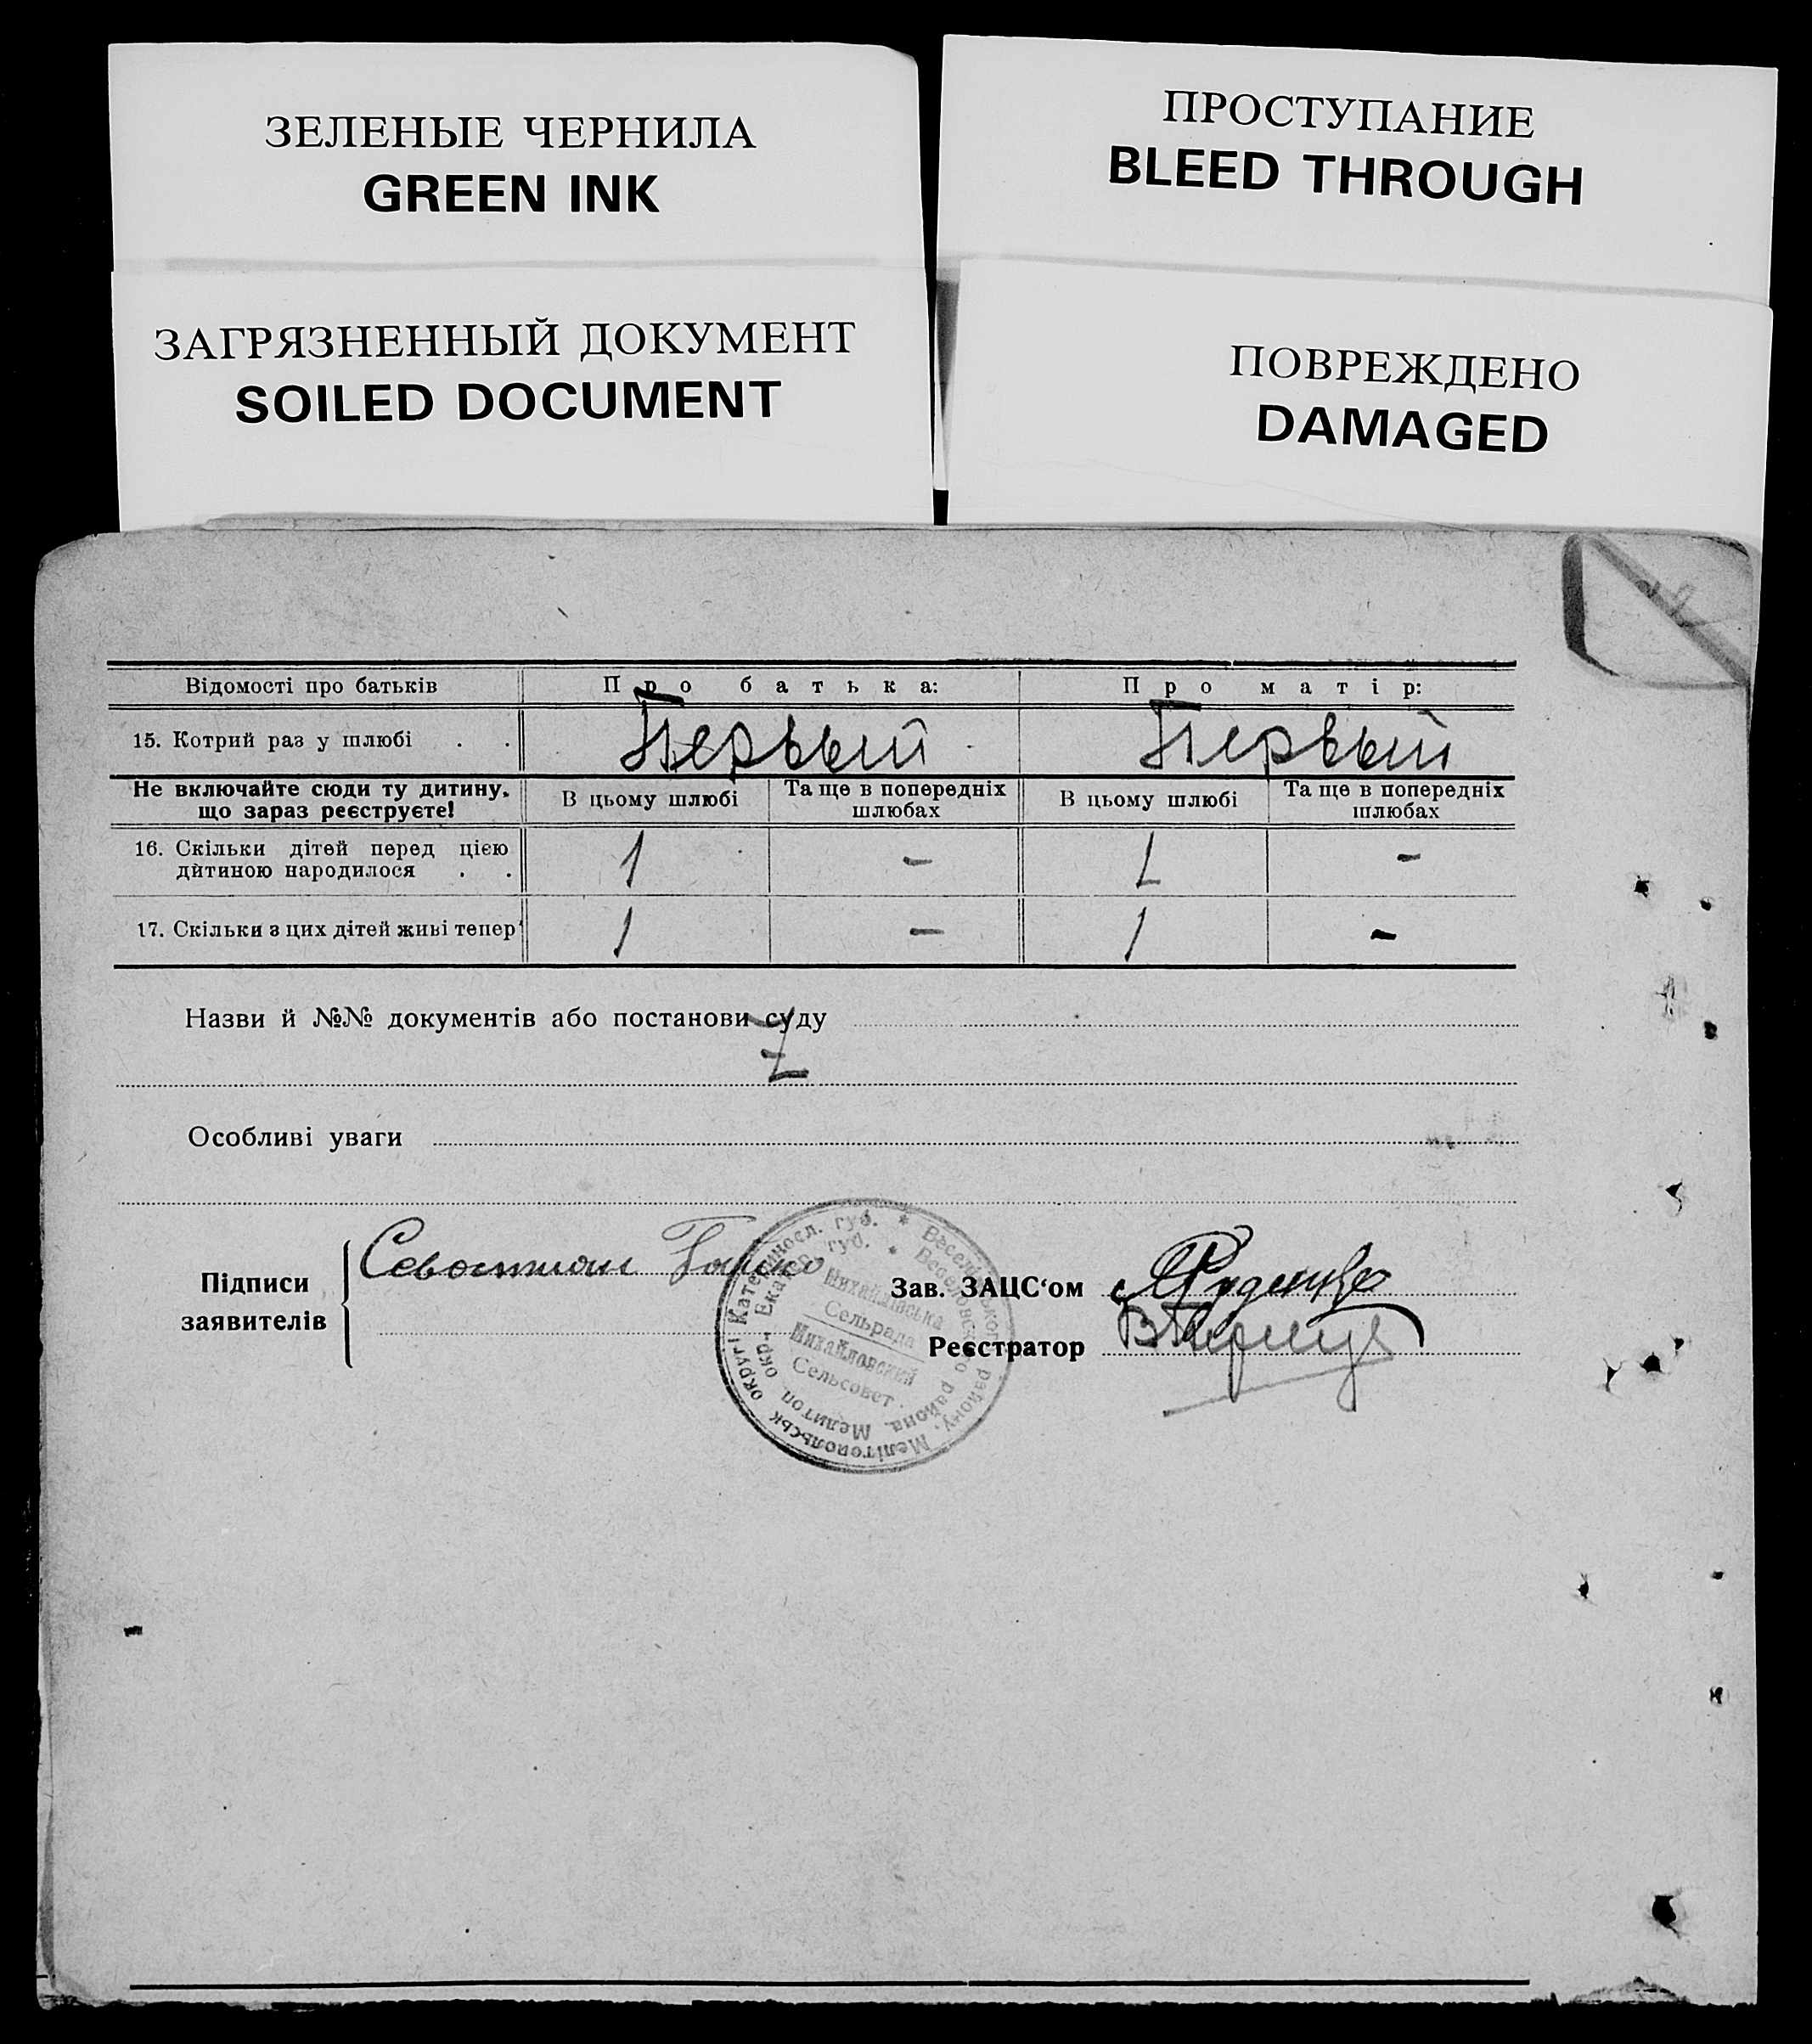 ЗЕЛЕНЫЕ ЧЕРНИЛА
GREEN INK
ПРОСТУПАНИЕ
BLEED THROUGH
ЗАГРЯЗНЕННЫЙ ДОКУМЕНТ
SOILED DOCUMENT
ПОВРЕЖДЕНО
DAMAGED
Відомості про батьків Про батька: Про матір:
15. Котрий раз у шлюбі . . Первый Первый
Не включайте сюди ту дитину, що зараз реєструєте! В цьому шлюбі Та ще в попередніх шлюбах В цьому шлюбі Та ще в попередніх шлюбах
16. Скільки дітей перед цією дитиною народилося . . 1 – 1 –
17. Скільки з цих дітей живі тепер 1 – 1 –
Назви й №№ документів або постанови суду
Особливі уваги
Підписи заявителів Севостиан
Зав. ЗАЦС‘ом
Реєстратор
Катериносл. губ. * Веселівського району, Мелітопольськ округи
Екатер. губ. * Веселовского района Мелитоп окр.
Михайлівська
Сельрада
Михайловский
Сельсовет